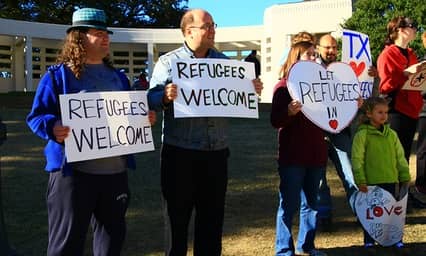 REFUGEES
WELCOME
REFUGEES
WELCOME
LET
REFUGEES
IN
TX
LOVE